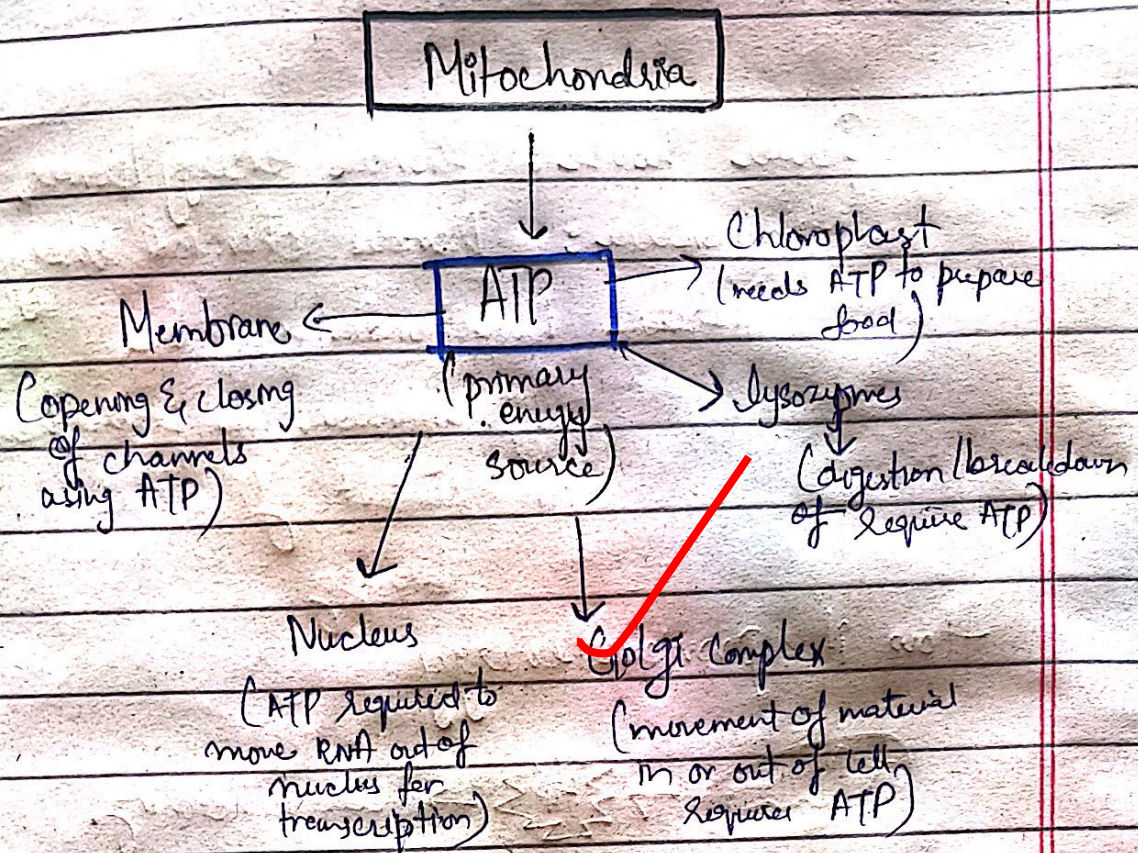 Mitochondria
ATP
(primary
energy
source)
Chloroplast
(needs ATP to prepare
food)
Membrane
(opening & closing
of channels
using ATP)
lysozymes
(digestion/breakdown
of require ATP)
Nucleus
(ATP required to
move RNA out of
nucleus for
transcription)
Golgi complex
(movement of material
in or out of cell
requires ATP)